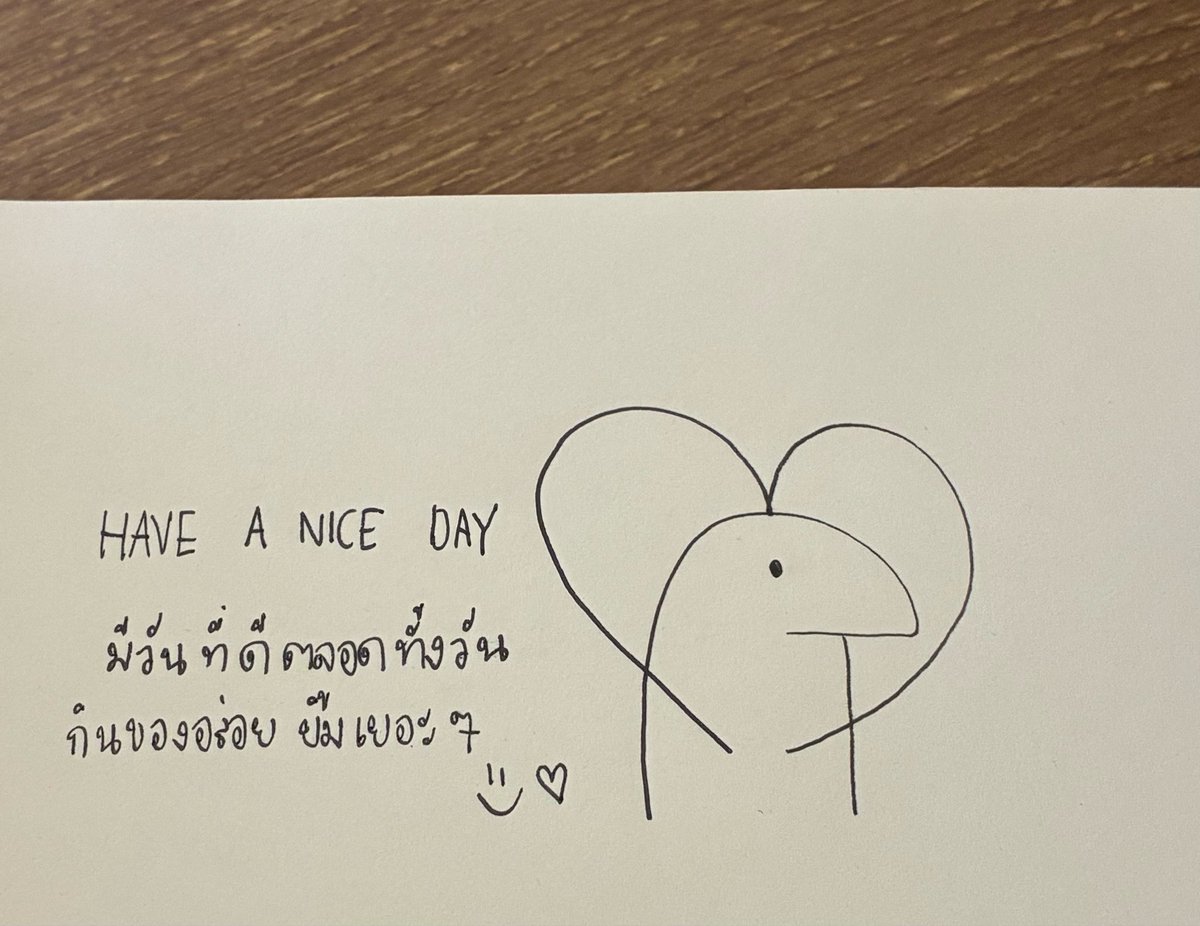 HAVE A NICE DAY
มีวันที่ดีตลอดทั้งวัน
กินของอร่อย ยิ้มเยอะๆ